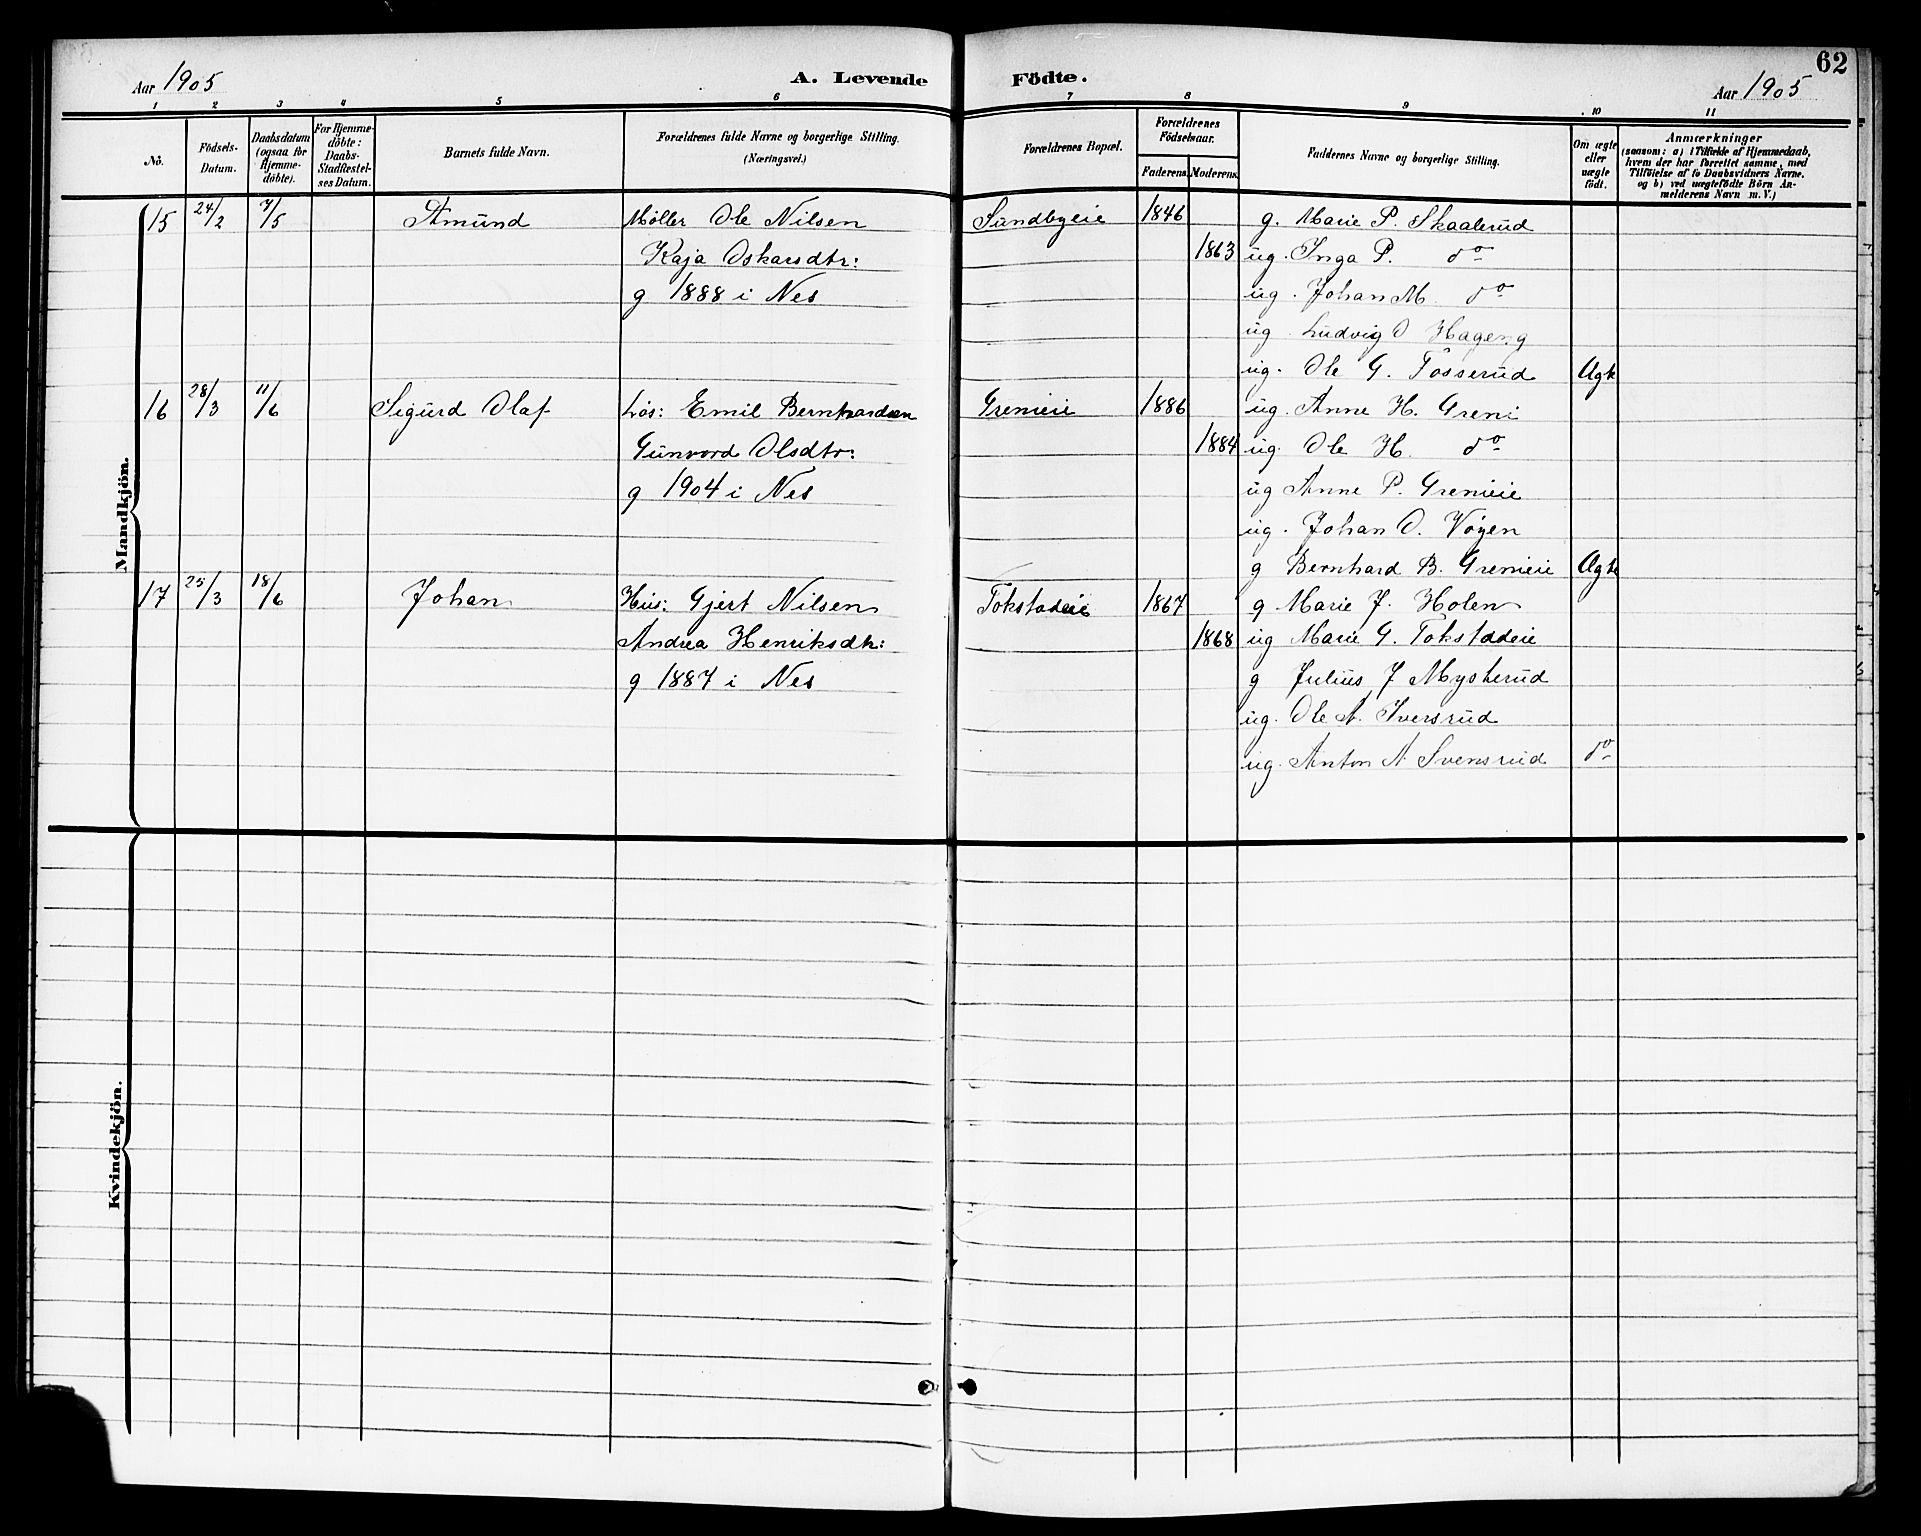 62
Aar 1905
A. Levende Födte.
Aar 1905
1 2 3 4 5 6 7 8 9 10 11
No.
Födsels-Datum.
Daabsdatum (ogsaa for Hjemme-döbte).
For Hjemme-döbte: Daabs-Stadfæstel-ses Datum.
Barnets fulde Navn.
Forældrenes fulde Navne og borgerlige Stilling.
(Næringsvei.)
Forældrenes Bopæl.
Forældrenes Födselsaar.
Faderens. Moderens.
Faddernes Navne og borgerlige Stilling.
Om ægte eller uægte födt.
Anmærkninger
(saasom: a) i Tilfælde af Hjemmedaab,
hvem der har forrettet samme, med
Tilföielse af to Daabsvidners Navne.
og b) ved uægtefödte Börn An-
melderens Navn m. V.)
Mandkjön.
15 24/2 7/5 Amund Møller Ole Nilsen Sundbyeie 1846 g. Marie P. Skaalerud
Kaja Oskarsdtr: 1863 ug. Inga P. do
g 1888 i Nes ug. Johan M. do
ug. Ludvig O Hageng
ug. Ole G. Fosserud Ægte
16 28/3 11/6 Sigurd Olaf Løs: Emil Bernhardsen Grenieie 1886 ug. Anne H. Greni
Gunvord Olsdtr: 1884 ug. Ole H. do
g 1904 i Nes ug Anne P. Grenieie
ug. Johan O. Vøyen
g Bernhard B. Grenieie Ægte
17 25/3 18/6 Johan Hus: Gjert Nilsen Tokstadeie 1867 g Marie J. Holen
Andrea Henriksdtr: 1868 ug Marie G. Tokstadeie
g 1887 i Nes g Julius J Mysterud
ug. Ole A. Iversrud
ug. Anton A. Svensrud do
Kvindekjön.